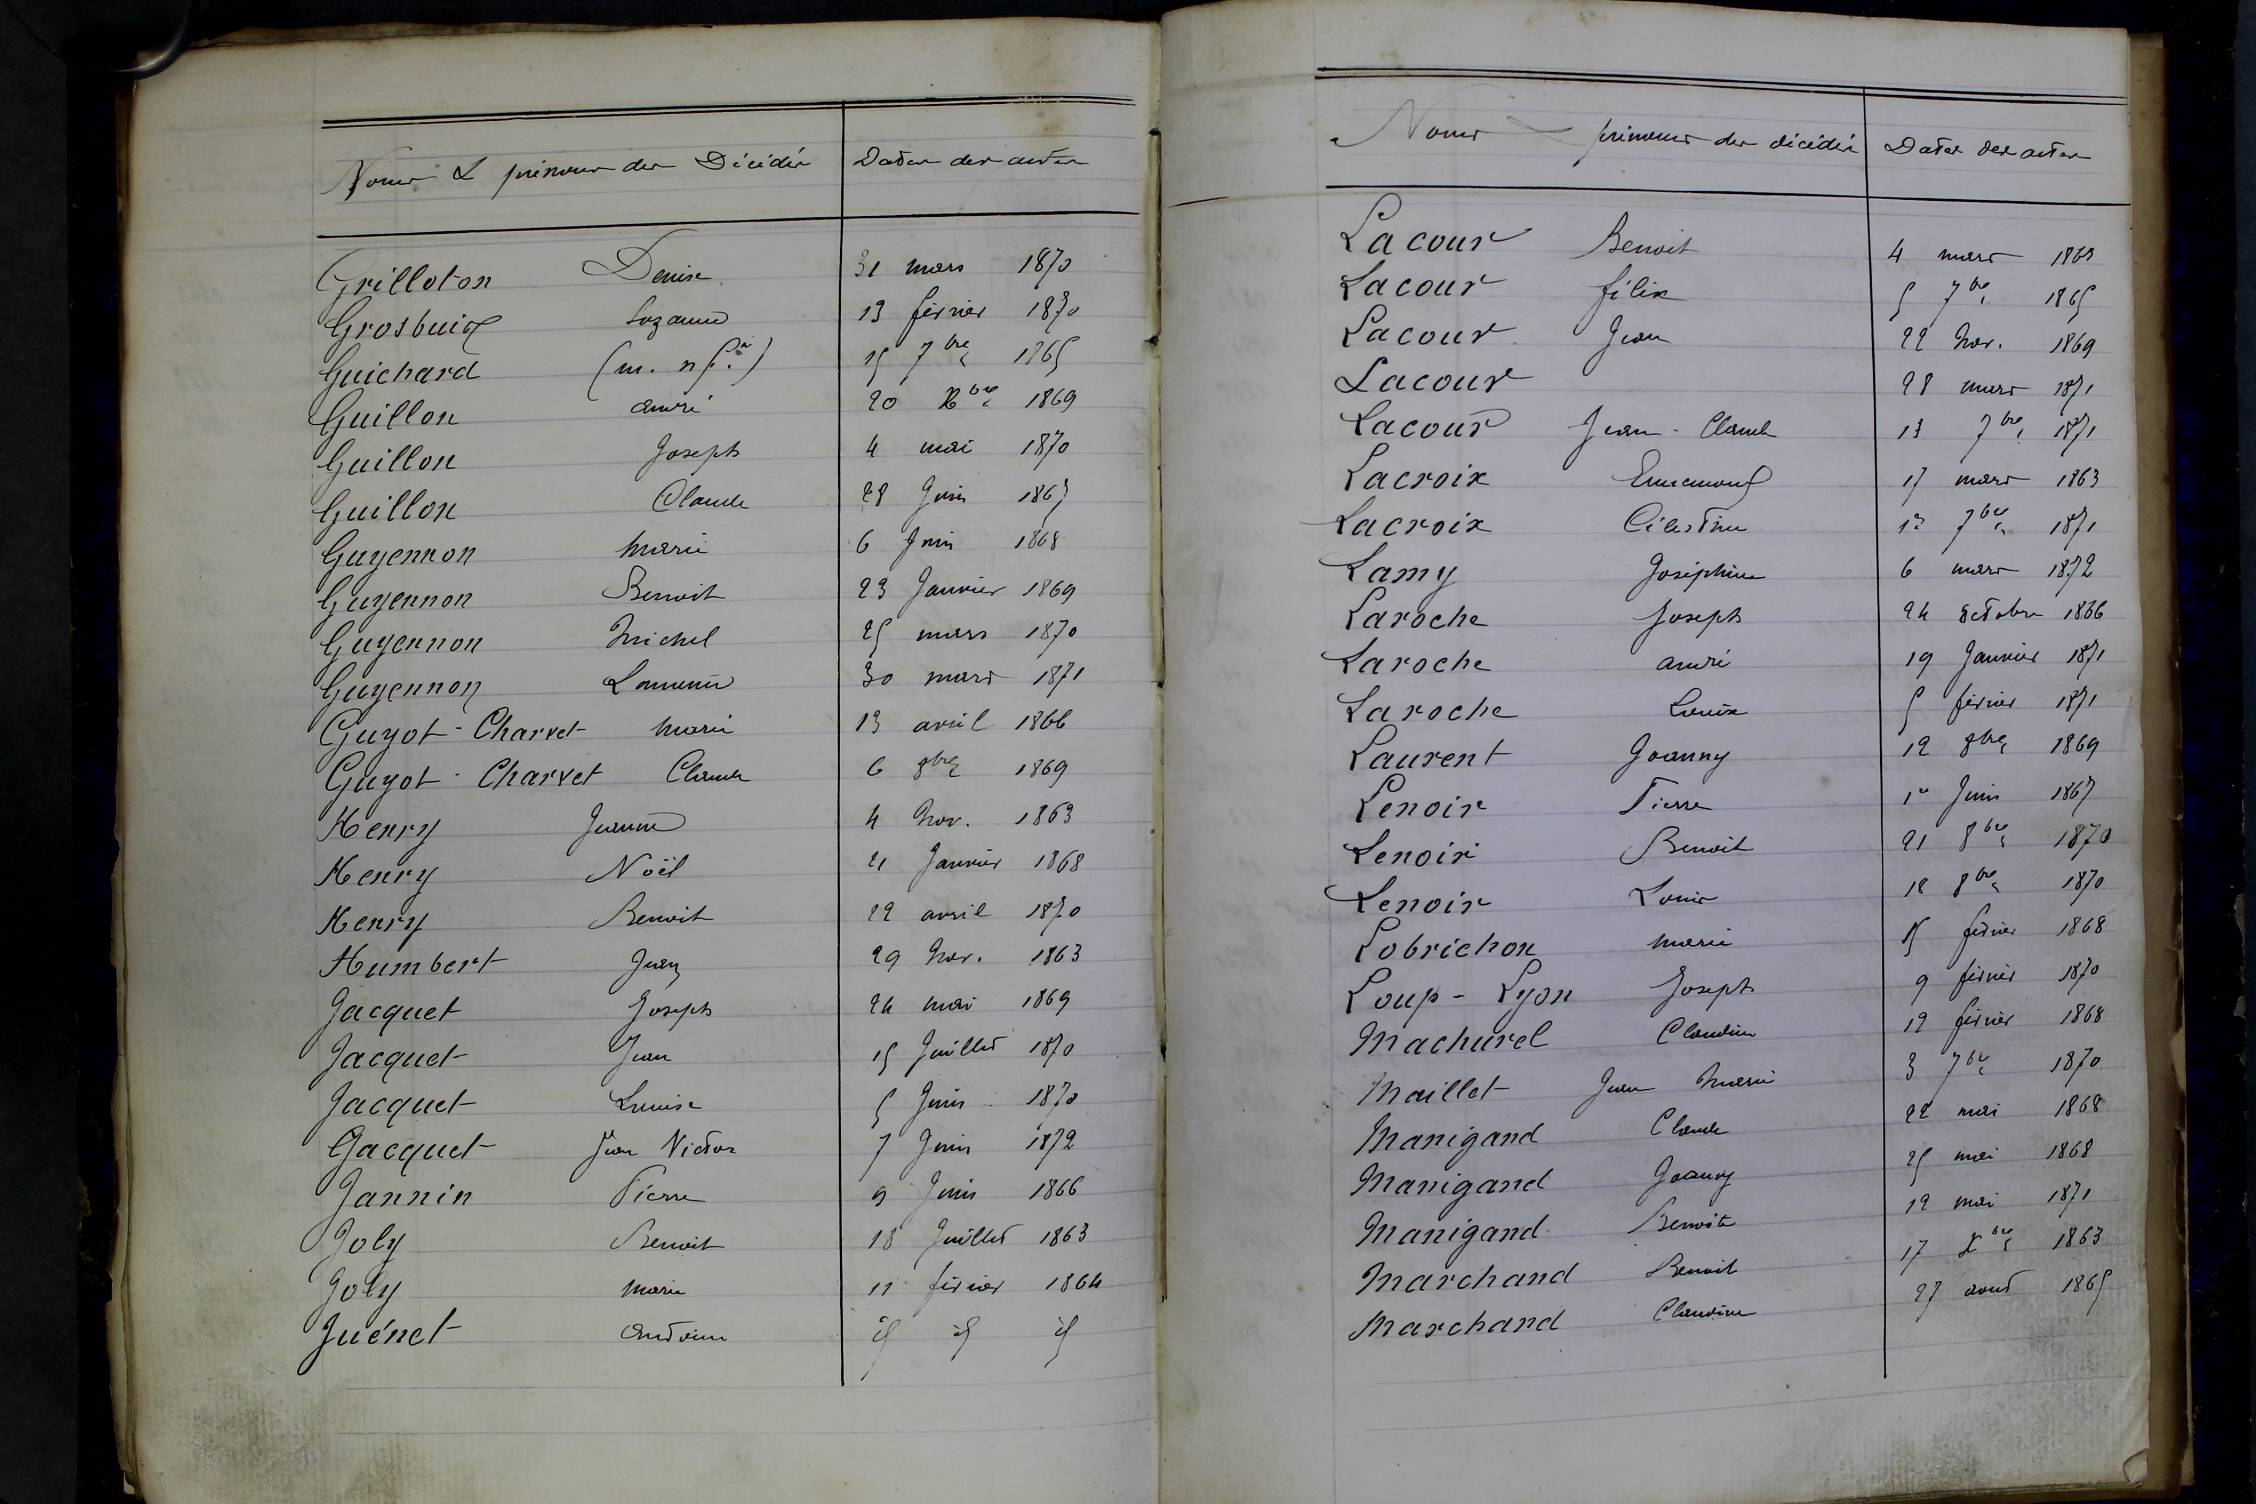 Noms & prénoms des Décédés Dates des actes
Grilloton Denise 31 mars 1870
Grosbuis Suzanne 13 février 1870
Guichard (m. n f.) 15 7bre 1865
Guillon André 20 Xbre 1869
Guillon Joseph 4 mai 1870
Guillon Claude 28 Juin 1867
Guyennon Marie 6 Juin 1868
Guyennon Benoit 23 Janvier 1869
Guyennon Michel 25 mars 1870
Guyennon 30 mars 1871
Guyot-Charvet Marie 13 avril 1866
Guyot-Charvet Claude 6 8bre 1869
Henry Jeanne 4 Nov. 1863
Henry Noël 21 Janvier 1868
Henry Benoit 22 avril 1870
Humbert Jean 29 Nov. 1863
Jacquet Joseph 24 mai 1869
Jacquet Jean 15 Juillet 1870
Jacquet Louise 5 Juin 1870
Jacquet Jean Victor 7 Juin 1872
Jannin Pierre 9 Juin 1866
Joly Benoit 18 Juillet 1863
Joly Marie 11 février 1864
Juénet Antoine
Noms & prénoms des décédés Dates des actes
Lacour Benoit 4 mars 1863
Lacour félix 5 7bre 1865
Lacour Jean 22 Nov. 1869
Lacour 28 mars 1871
Lacour Jean-Claude 13 7bre 1871
Lacroix Ennemond 17 mars 1863
Lacroix Célestine 12 7bre 1871
Lamy Joséphine 6 mars 1872
Laroche Joseph 24 octobre 1866
Laroche André 19 Janvier 1871
Laroche Louise 5 février 1871
Laurent Joanny 12 8bre 1869
Lenoir Pierre 1er Juin 1867
Lenoir Benoit 21 8bre 1870
Lenoir Louis 18 8bre 1870
Lobrichon Marie 15 février 1868
Loup-Lyon Joseph 9 février 1870
Machurel Claudine 12 février 1868
Maillet Jean Marie 3 7bre 1870
Manigand Claude 22 mai 1868
Manigand Joanny 25 mai 1868
Manigand Benoite 12 mai 1871
Marchand Benoit 17 Xbre 1863
Marchand Claudine 27 aout 1865